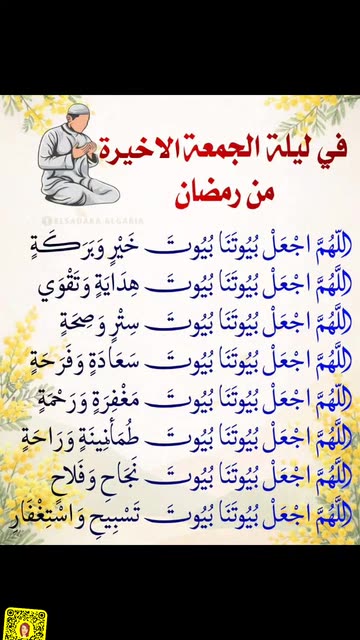 في ليلة الجمعة الاخيرة
من رمضان
ELSADAKA ALGARIA
اللَّهُمَّ اجْعَلْ بُيُوتَنَا بُيُوتَ خَيْرٍ وَبَرَكَةٍ
اللَّهُمَّ اجْعَلْ بُيُوتَنَا بُيُوتَ هِدَايَةٍ وَتَقْوَي
اللَّهُمَّ اجْعَلْ بُيُوتَنَا بُيُوتَ سِتْرٍ وَصِحَةٍ
اللَّهُمَّ اجْعَلْ بُيُوتَنَا بُيُوتَ سَعَادَةٍ وَفَرَحَةٍ
اللَّهُمَّ اجْعَلْ بُيُوتَنَا بُيُوتَ مَغْفِرَةٍ وَرَحْمَةٍ
اللَّهُمَّ اجْعَلْ بُيُوتَنَا بُيُوتَ طُمَأنِينَةٍ وَرَاحَةٍ
اللَّهُمَّ اجْعَلْ بُيُوتَنَا بُيُوتَ نَجَاحِ وَفَلَاحِ
اللَّهُمَّ اجْعَلْ بُيُوتَنَا بُيُوتَ تَسْبِيحِ وَاسْتِغْفَارِ